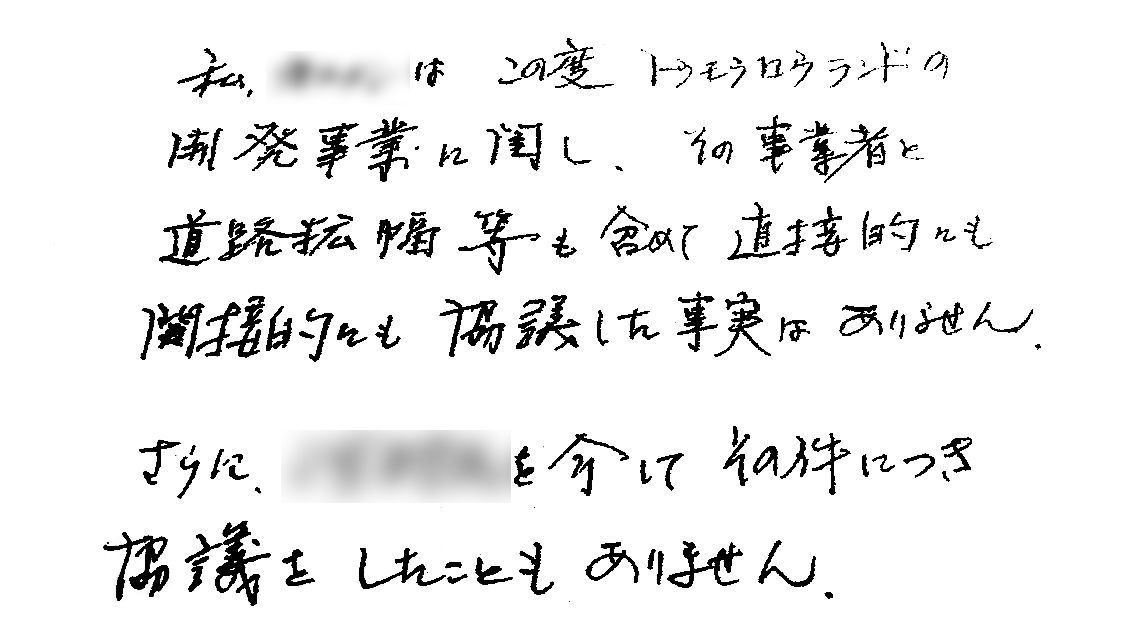 私、は この度 トゥモウロウランドの
開発事業に関し、その事業者と
道路拡幅等も含めて直接的にも
間接的にも協議した事実はありません.
さらに、を介して その件につき
協議をしたことも ありません.